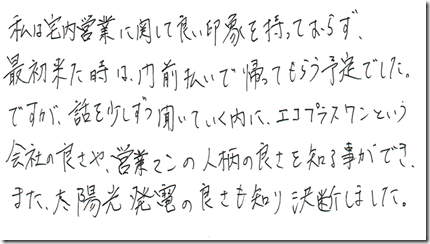 私は宅内営業に関して良い印象を持っておらず、
最初来た時は、門前払いで帰ってもらう予定でした。
ですが、話を少しずつ聞いていく内に、エコプラスワンという
会社の良さや、営業マンの人柄の良さを知る事ができ、
また、太陽光発電の良さも知り決断しました。